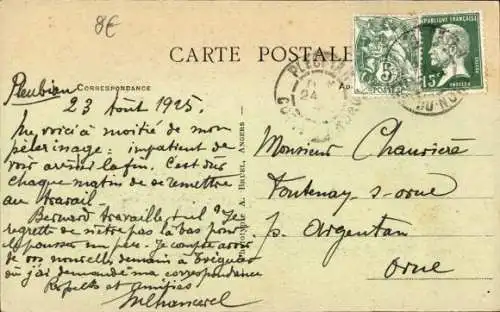 8€
CARTE POSTALE
CORRESPONDANCE
RÉPUBLIQUE FRANÇAISE
15c
5c
POSTES
24
DU-NORD
Pleubian
23 Août 1925.
Me voici à moitié de mon
pèlerinage : impatient de
voir arriver la fin. C'est dur
chaque matin de se remettre
au travail
Bernard travaille-t-il ? Je
regrette de n'être pas là bas pour
le pousser un peu. Je compte avoir
de vos nouvelles demain à Tréguier
où j'ai demandé ma correspondance
Respects et amitiés
PHOTOTYPIE A. BRUEL, ANGERS
Monsieur Chauvière
Fontenay-s-orne
p. Argentan
Orne